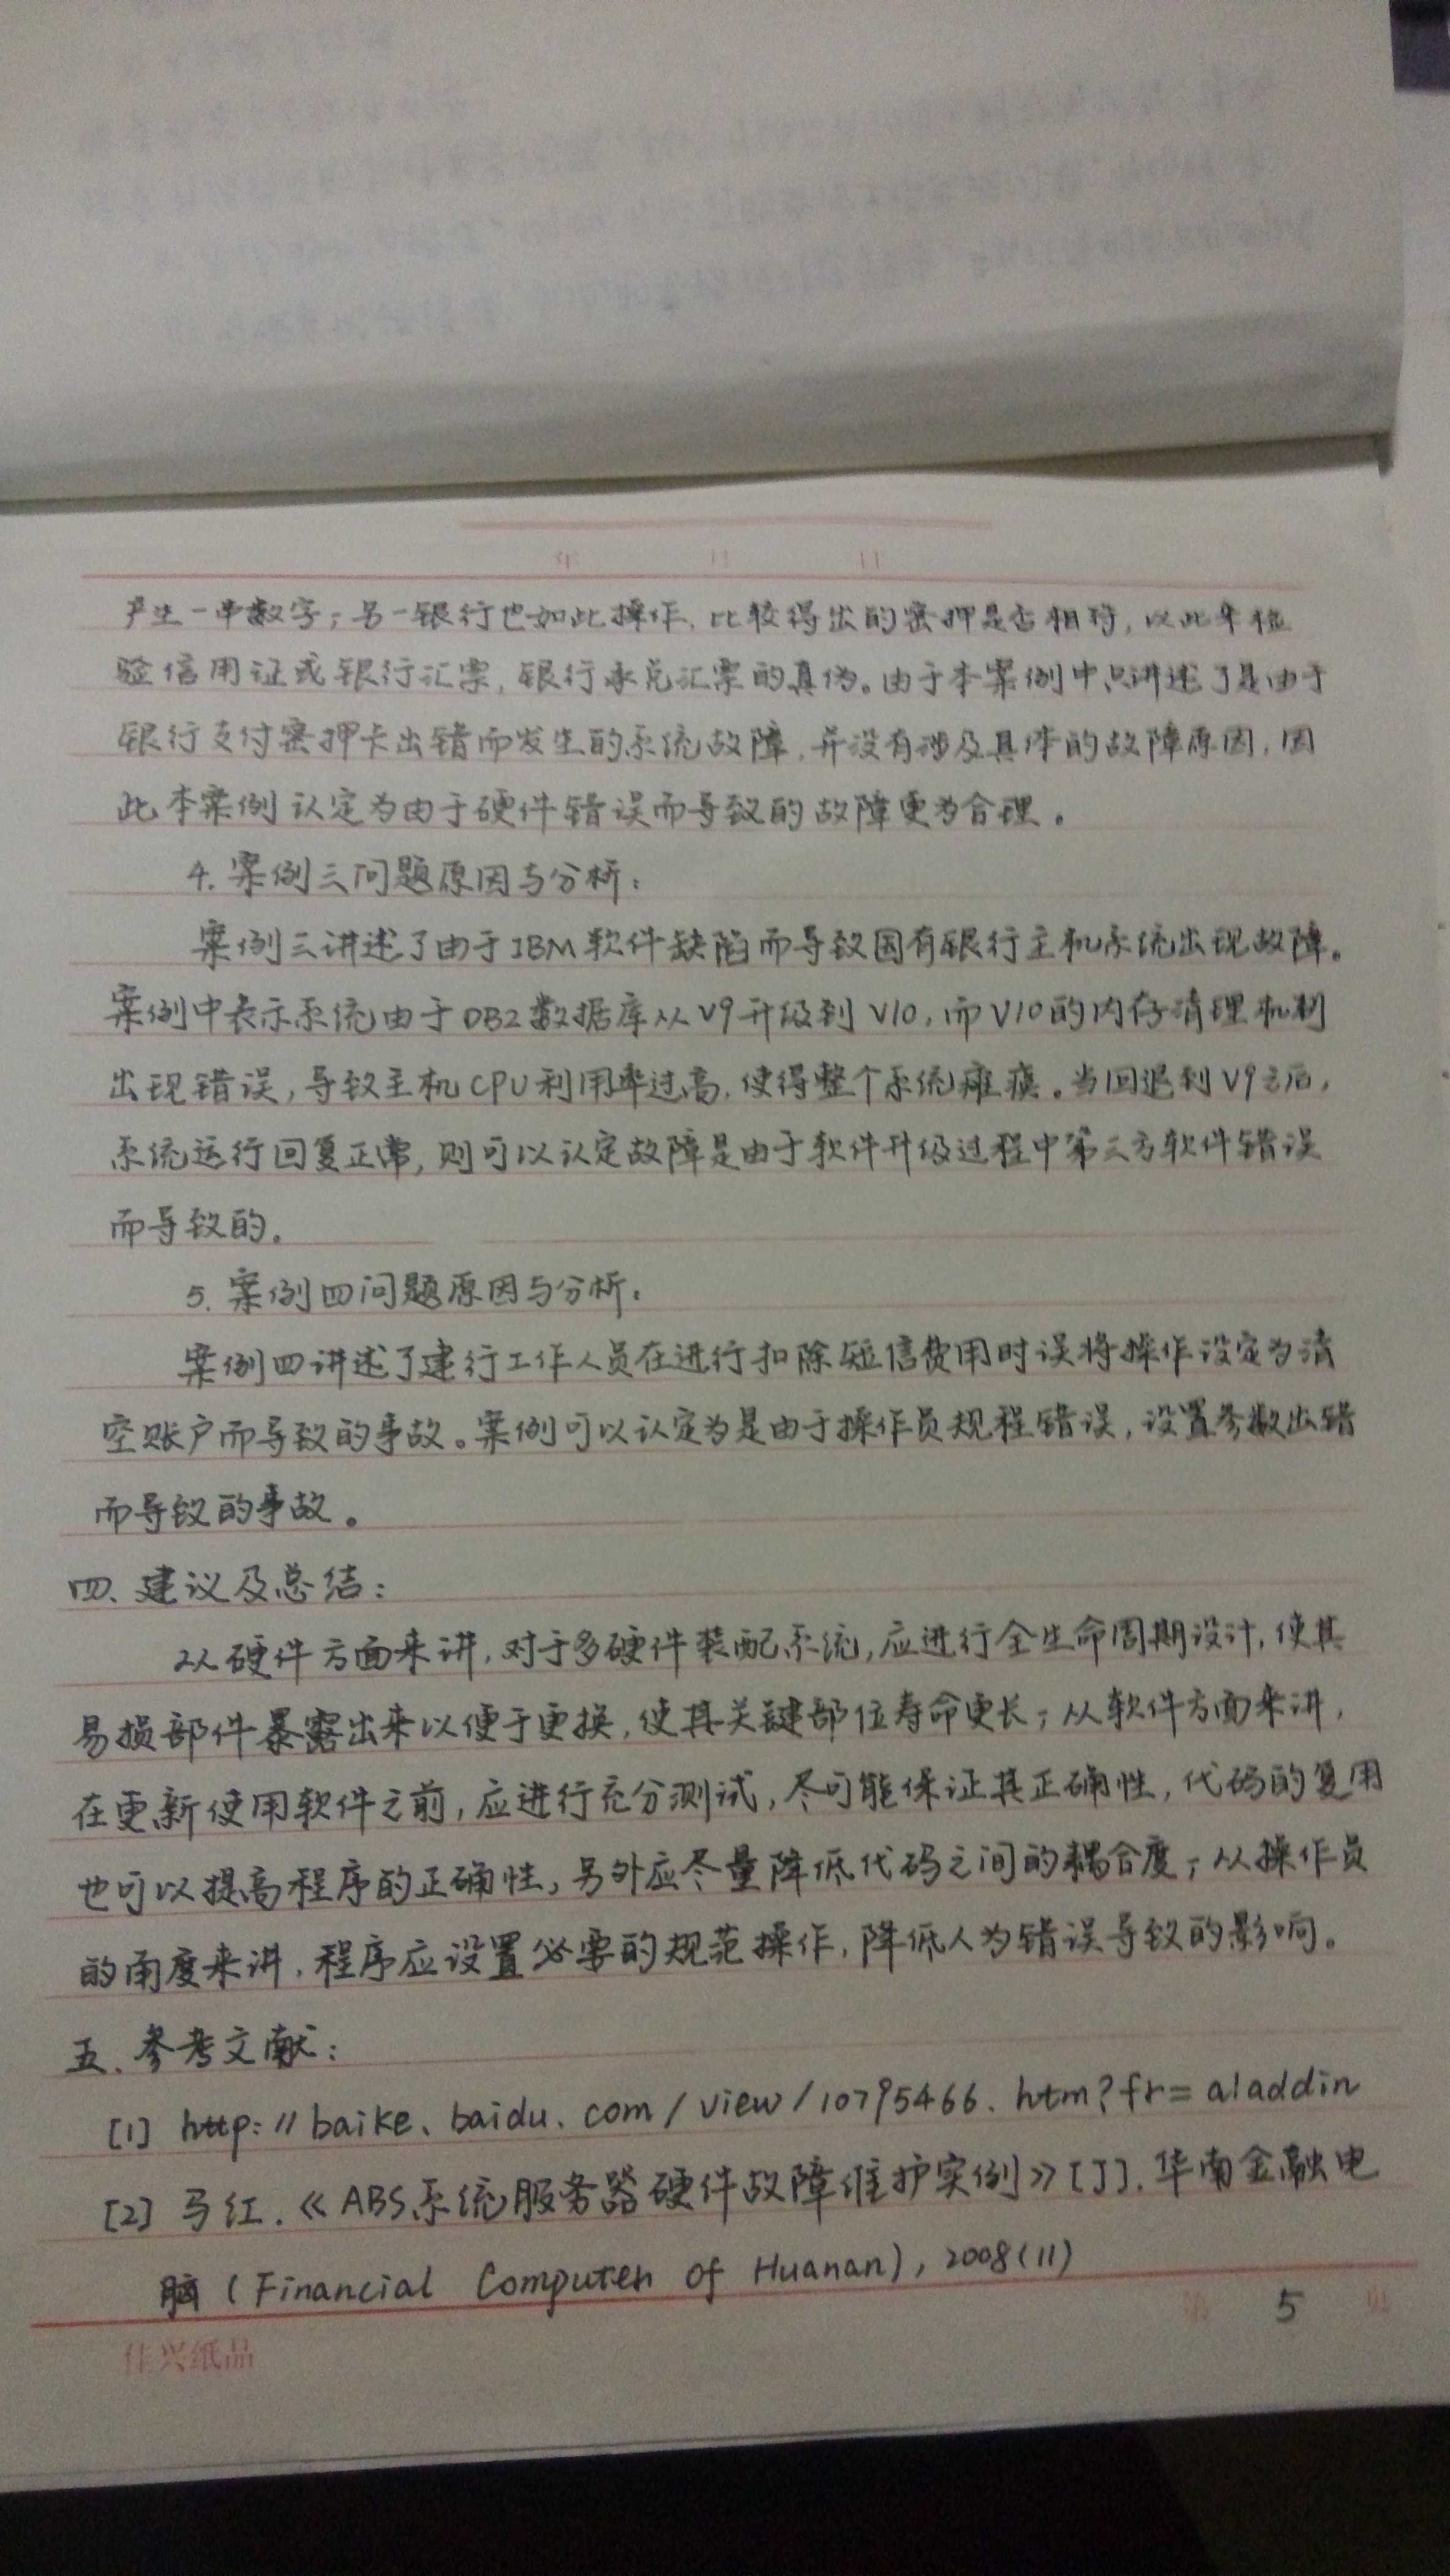 年 月 日
产生一串数字；另一银行也如此操作，比较得出的密押是否相符，以此来检
验信用证或银行汇票，银行承兑汇票的真伪。由于本案例中只讲述了是由于
银行支付密押卡出错而发生的系统故障，并没有涉及具体的故障原因，因
此本案例认定为由于硬件错误而导致的故障更为合理。
4. 案例三问题原因与分析：
案例三讲述了由于IBM软件缺陷而导致国有银行主机系统出现故障。
案例中表示系统由于DB2数据库从V9升级到V10，而V10的内存清理机制
出现错误，导致主机CPU利用率过高，使得整个系统瘫痪。当回退到V9之后，
系统运行回复正常，则可以认定故障是由于软件升级过程中第三方软件错误
而导致的。
5. 案例四问题原因与分析：
案例四讲述了建行工作人员在进行扣除短信费用时误将操作设定为清
空账户而导致的事故。案例可以认定为是由于操作员规程错误，设置参数出错
而导致的事故。
四、建议及总结：
从硬件方面来讲，对于多硬件装配系统，应进行全生命周期设计，使其
易损部件暴露出来以便于更换，使其关键部位寿命更长；从软件方面来讲，
在更新使用软件之前，应进行充分测试，尽可能保证其正确性，代码的复用
也可以提高程序的正确性，另外应尽量降低代码之间的耦合度；从操作员
的角度来讲，程序应设置必要的规范操作，降低人为错误导致的影响。
五、参考文献：
[1] http://baike.baidu.com/view/10795466.htm?fr=aladdin
[2] 马红.《ABS系统服务器硬件故障维护实例》[J]. 华南金融电
脑（Financial Computer of Huanan），2008(11)
第 5 页
佳兴纸品